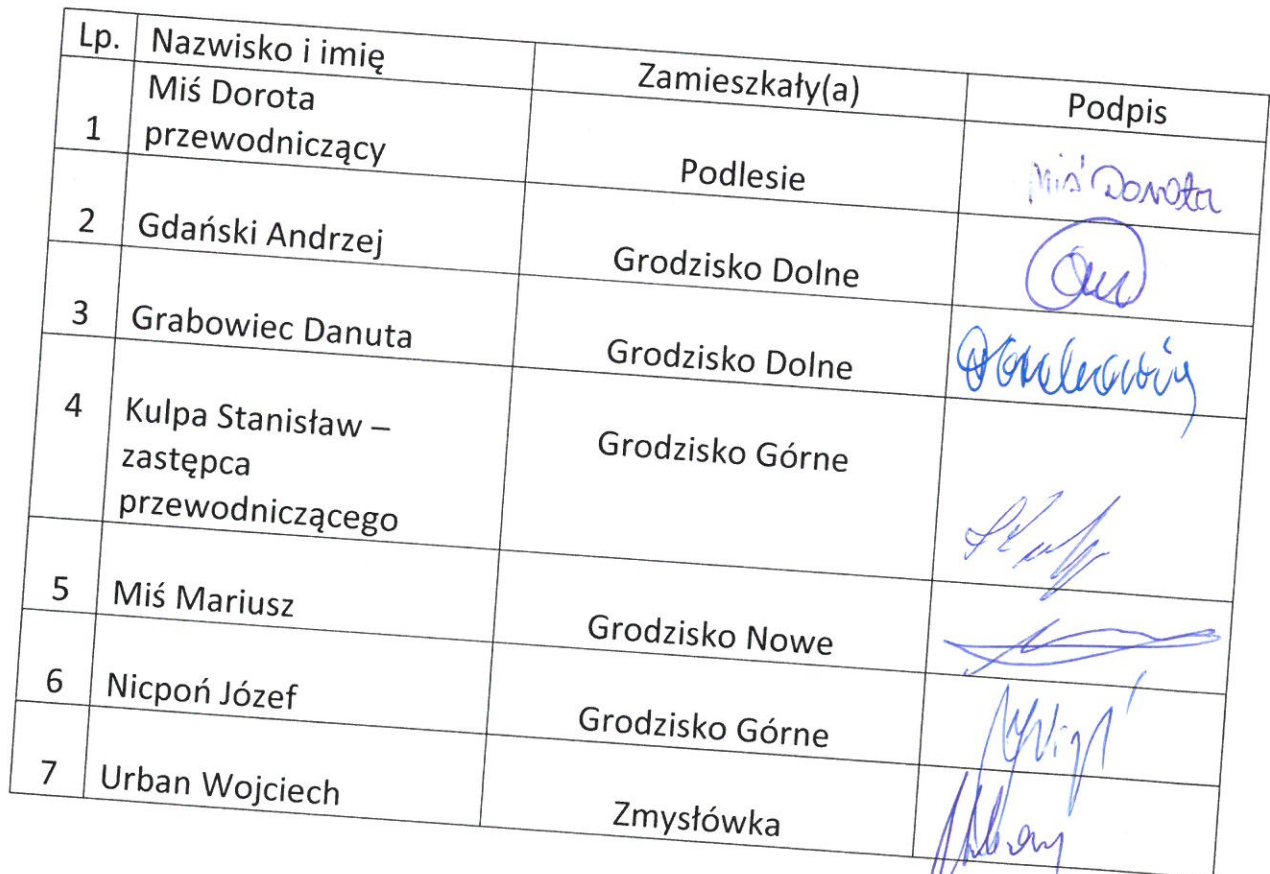 Lp. Nazwisko i imię Zamieszkały(a) Podpis
1 Miś Dorota
przewodniczący Podlesie Miś Dorota
2 Gdański Andrzej Grodzisko Dolne
3 Grabowiec Danuta Grodzisko Dolne
4 Kulpa Stanisław – Grodzisko Górne
zastępca
przewodniczącego
5 Miś Mariusz Grodzisko Nowe
6 Nicpoń Józef Grodzisko Górne
7 Urban Wojciech Zmysłówka